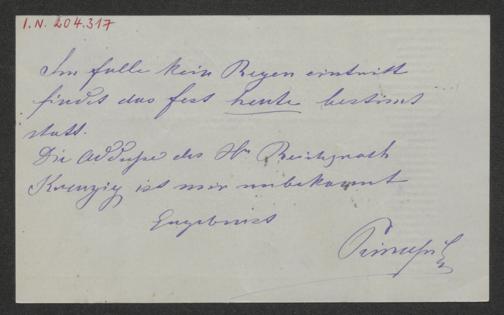 I.N. 204.317
Im falle kein Regen eintritt
findet das fest heute bestimt
statt.
Die Addresse des Hr Reichsrath
ist mir unbekannt
Ergebenst